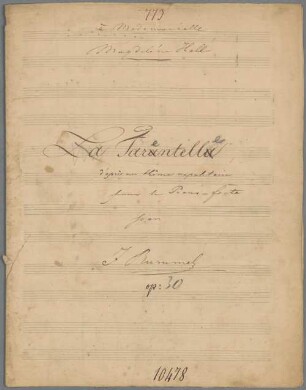 773
à Mademoiselle
Magdeleine Holl
La Tarentelle
d'après un thème napolitain
pour le Piano-forte
par
J. Rummel
op: 30
10478